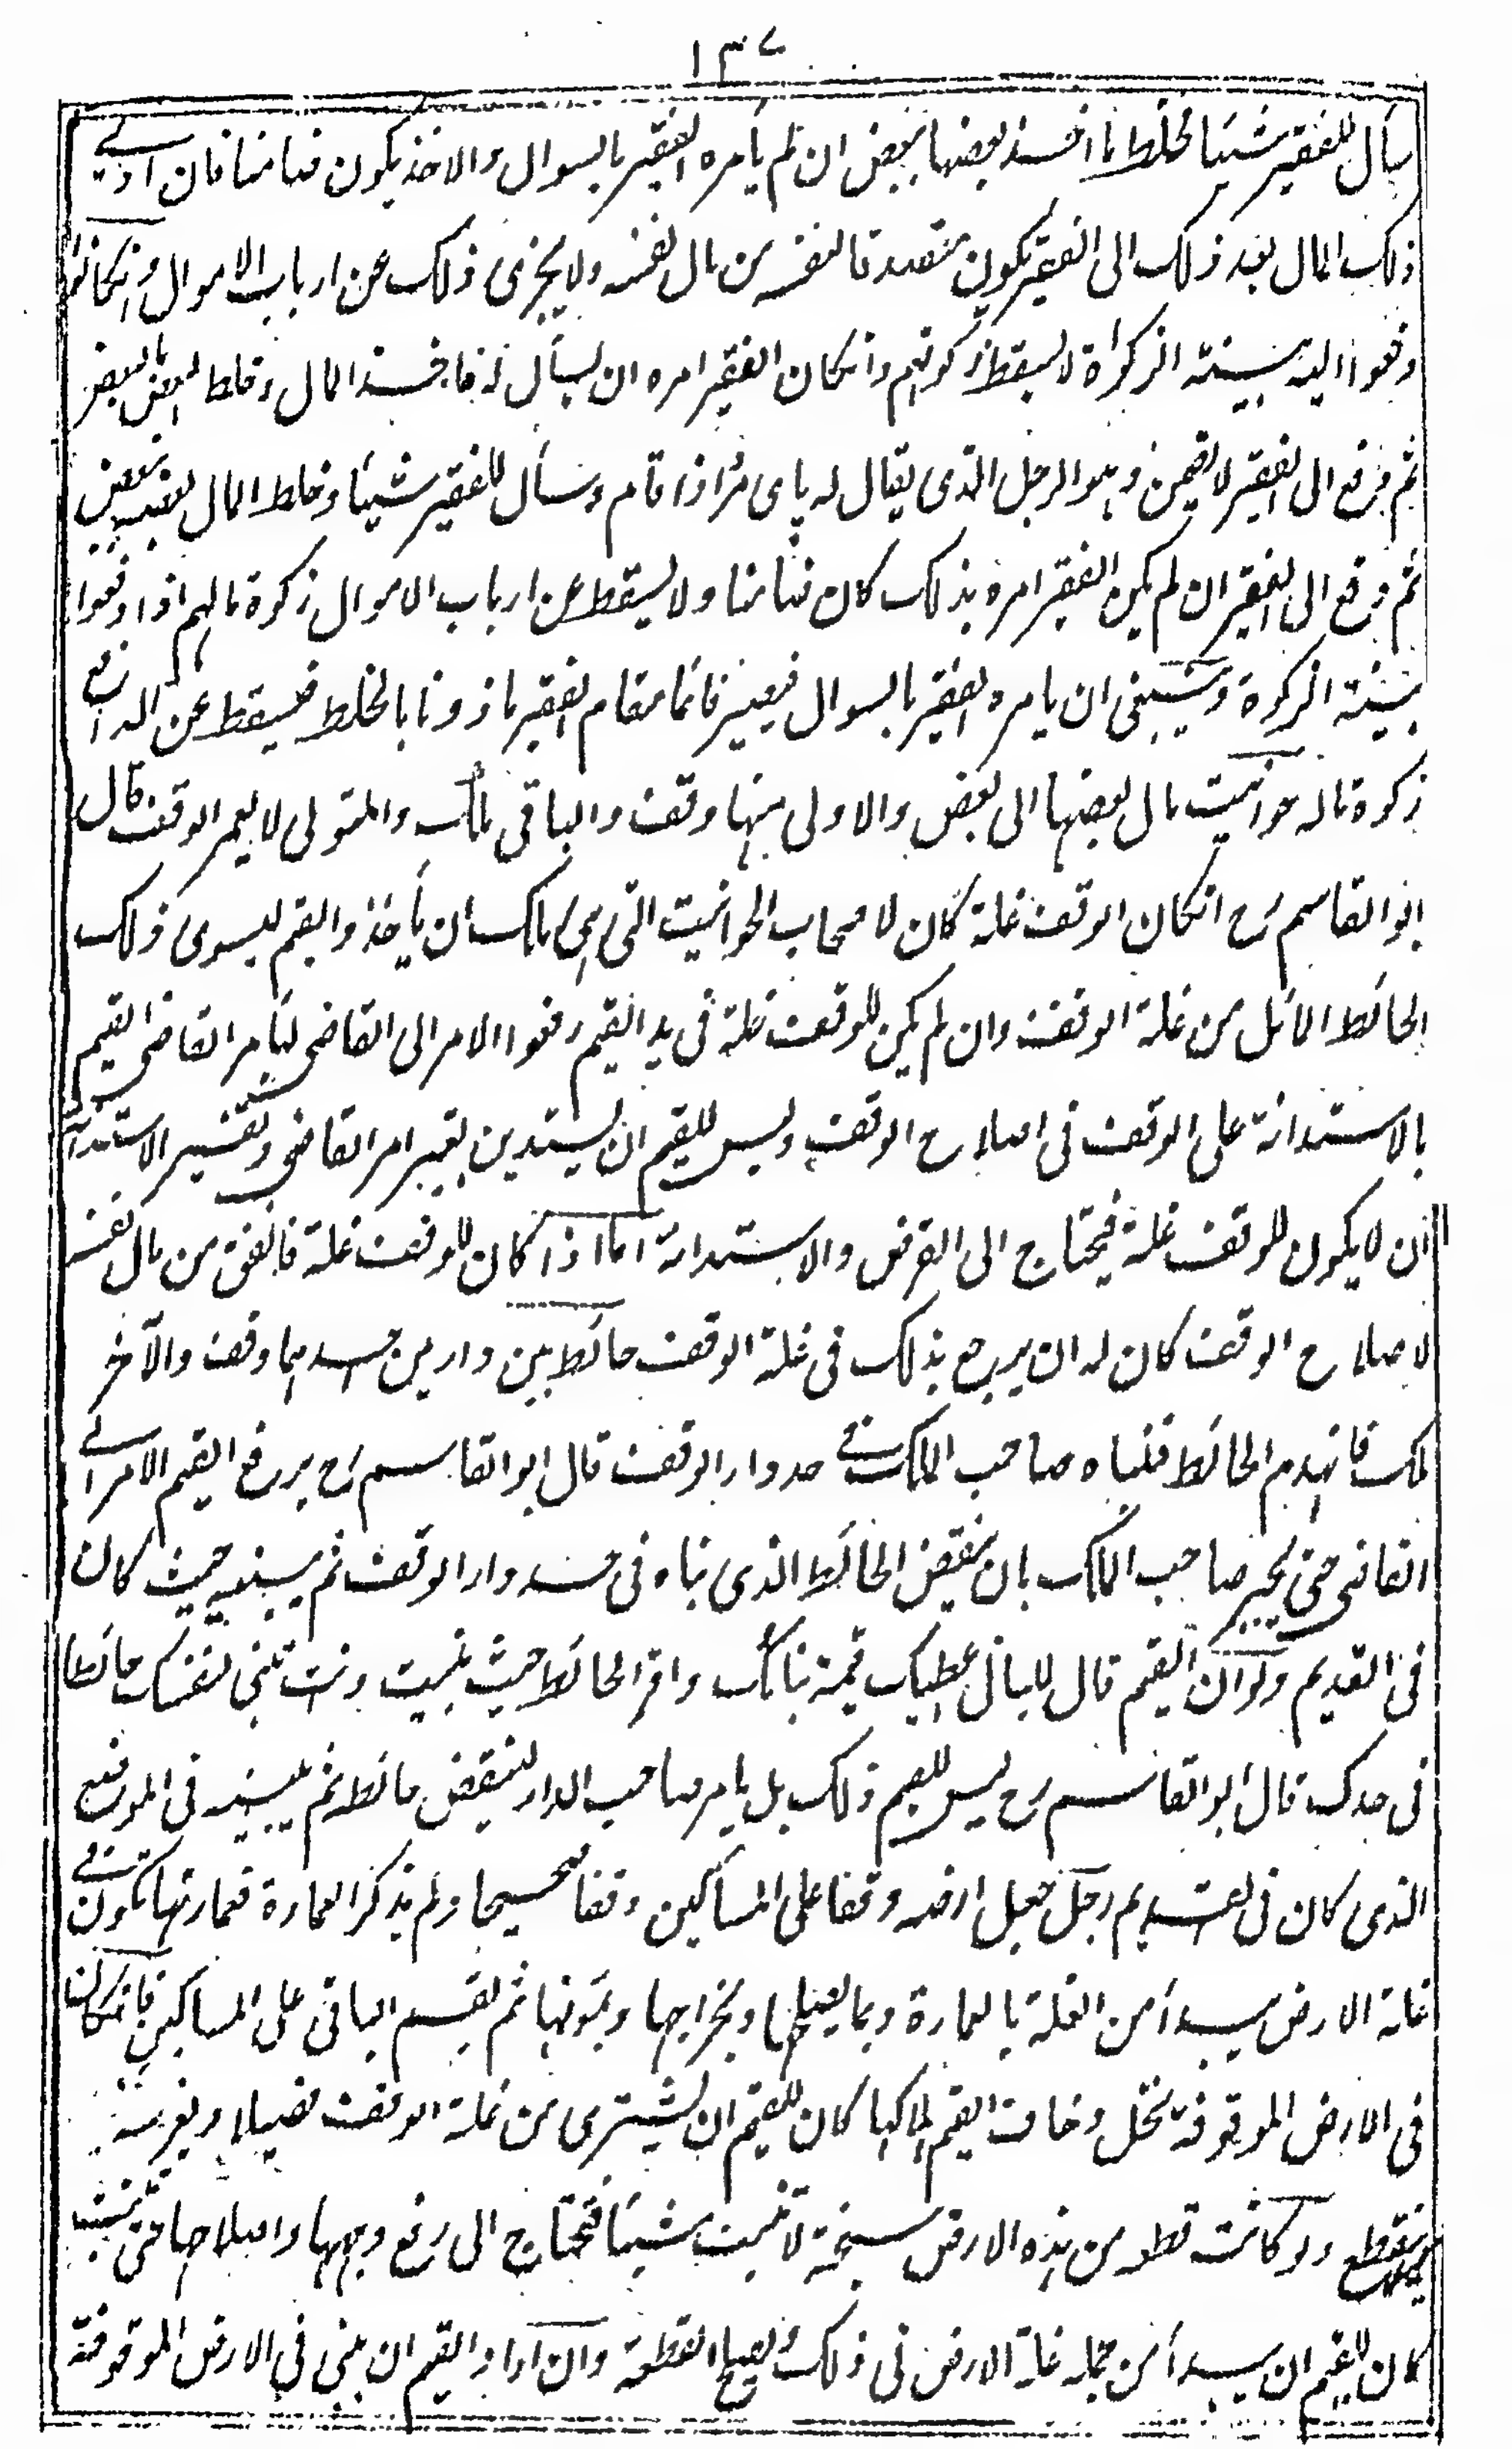 ١٣٧
سأل للفقير شيئا فخلط ما اخذ بعضها ببعض ان لم يأمره الفقير بالسوال والاخذ يكون ضامنا فان ادى
ذلك المال بعد ذلك الى الفقير يكون متصدقا لنفسه من مال نفسه ولا يجزى ذلك عن ارباب الاموال وانكانوا
دفعوا اليه بنية الزكواة لا يسقط زكوتهم وانكان الفقير امره ان يسأل له فاخذ المال وخلط البعض بالبعض
ثم دفع الى الفقير لا يضمن وهو الرجل الذى يقال له پاى مرد اذا قام وسأل للفقير شيئا وخلط المال بعضه ببعض
ثم دفع الى الفقير ان لم يكن الفقير امره بذلك كان ضامنا ولا يسقط عن ارباب الاموال زكوة مالهم اذا دفعوا
بنية الزكوة وينبغى ان يامره الفقير بالسوال فيصير قائما مقام الفقير ماذونا بالخلط فيسقط عن الدافع
زكوة ماله حوانيت مال بعضها الى بعض والاولى منها وقف والباقى ملك والمتولى لا يعمر الوقف قال
ابو القاسم رح انكان الوقف غلة كان لاصحاب الحوانيت التى هى ملك ان يأخذوا القيم ليسوى ذلك
الحائط المائل من غلة الوقف وان لم يكن للوقف غلة فى يد القيم رفعوا الامر الى القاضى ليأمر القاضى القيم
بالاستدانة على الوقف فى اصلاح الوقف وليس للقيم ان يستدين بغير امر القاضى وتفسير الاستدانة
ان لا يكون للوقف غلة فيحتاج الى القرض والاستدانة اما اذا كان للوقف غلة فانفق من مال نفسه
لاصلاح الوقف كان له ان يرجع بذلك فى غلة الوقف حائط بين دارين احدهما وقف والآخر
ملك فانهدم الحائط فبناه صاحب الملك فى حد دار الوقف قال ابو القاسم رح يرفع القيم الامر الى
القاضى حتى يجبر صاحب الملك بان ينقض الحائط الذى بناه فى حد دار الوقف ثم يبنيه حيث كان
فى القديم ولو ان القيم قال للبانى اعطيك قيمة بنائك واقر الحائط حيث بنيت وانت تبنى لنفسك حائطا
فى حدك قال ابو القاسم رح ليس للقيم ذلك بل يامر صاحب الدار لينقض حائطه ثم يبنيه فى الموضع
الذى كان فى القديم رجل جعل ارضه وقفا على المساكين وقفا صحيحا ولم يذكر العمارة فعمارتها تكون فى
غلة الارض يبدأ من الغلة بالعمارة وبما يصلحها وبخراجها وبمؤنها ثم يقسم الباقى على المساكين فانكان
فى الارض الموقوفة نخل وخاف القيم هلاكها كان للقيم ان يشترى من غلة الوقف فصيلا ويغرسه
كيلا ينقطع ولو كانت قطعة من هذه الارض سبخة لا تنبت شيئا فتحتاج الى رفع وجهها واصلاحها حتى تنبت
كان للقيم ان يبدأ من جملة غلة الارض فى ذلك ويصلح القطعة وان اراد القيم ان يبنى فى الارض الموقوفة